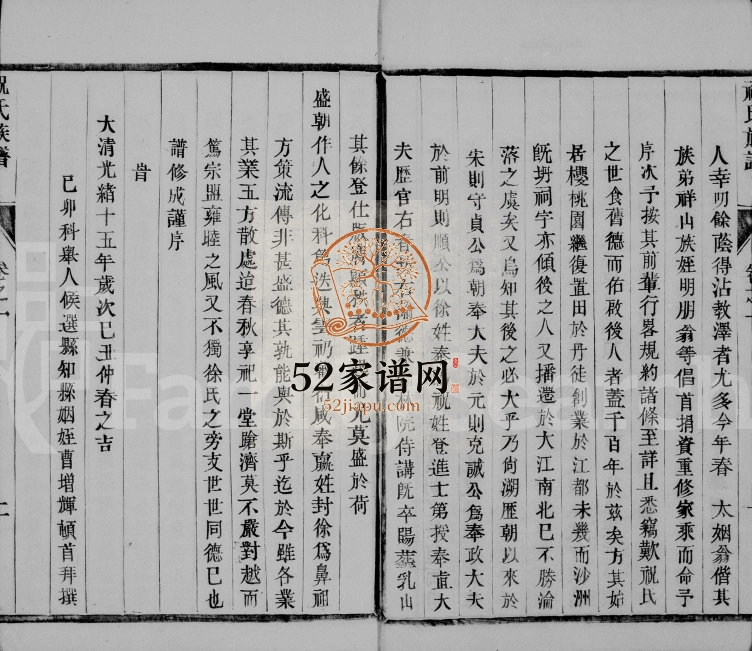 人幸叨餘蔭得沾教澤者尤多今年春　太姻翁偕其
族弟祥山族姪明朋翁等倡首捐資重修家乘而命予
序次予按其前輩行畧規約諸條至詳且悉竊歎祝氏
之世食舊德而佑啟後人者蓋千百年於茲矣方其始
居櫻桃園繼復置田於丹徒創業於江都未幾而沙洲
既坍祠宇亦傾後之人又播遷於大江南北已不勝淪
落之虞矣又烏知其後之必大乎乃尚溯歷朝以來於
宋則守貞公為朝奉大夫於元則克誠公為奉政大夫
於前明則順公以徐姓奉祝姓登進士第授奉直大
夫歷官右春坊右諭德兼林院侍講既卒賜葬乳山
其餘登仕版膺顯秩者踵而元莫盛於荷
盛朝作人之化科為奉嬴姓封徐為鼻祖
方策流傳非甚盛德其孰能與於斯乎迄於今雖各業
其業五方散處迨春秋享祀一堂蹌濟莫不嚴對越而
篤宗盟雍睦之風又不獨徐氏之旁支世世同德已也
譜修成謹序
旹
大清光緒十五年歲次己丑仲春之吉
己卯科舉人候選縣知縣姻姪曹增輝頓首拜撰
祝氏族譜
卷之一
52家谱网
52jiapu.com